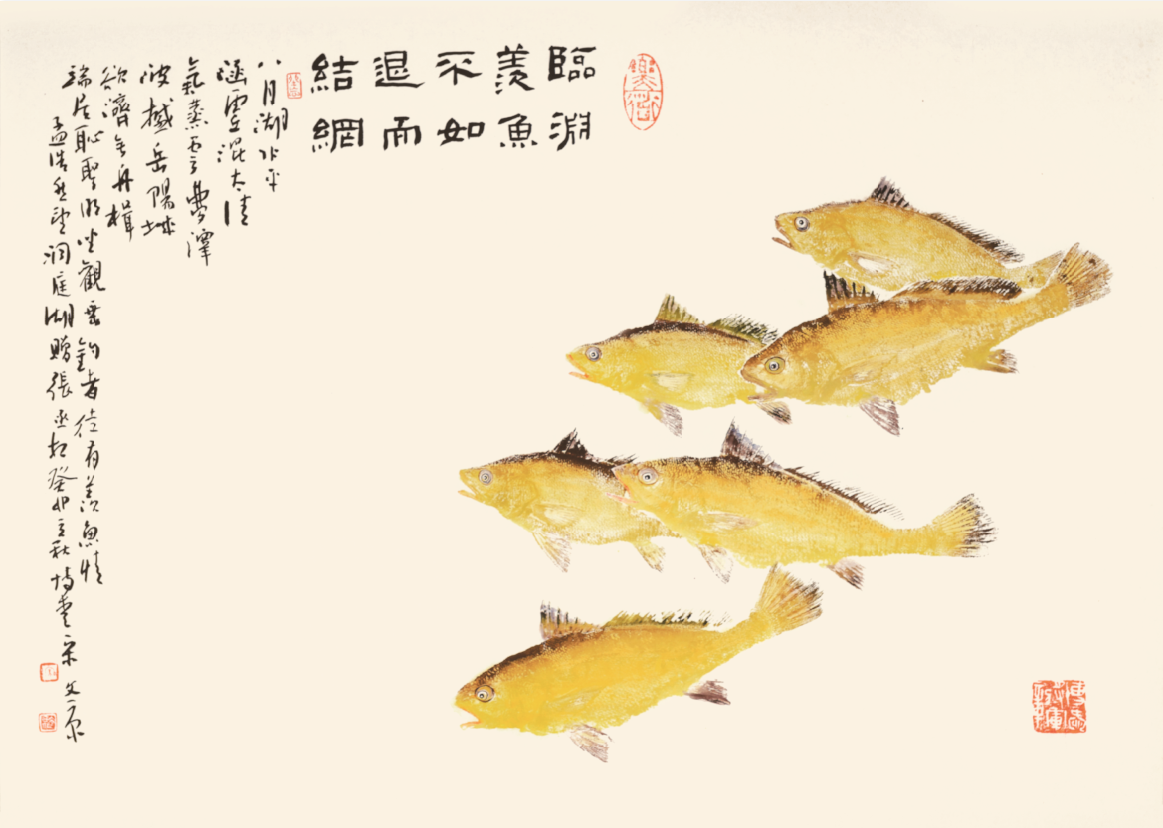 臨淵
羨魚
不如
退而
結網
八月湖水平
涵虛混太清
氣蒸云夢澤
波撼岳陽城
欲濟無舟楫
端居恥聖明坐觀垂釣者徒有羨魚情
孟浩然望洞庭湖贈張丞相癸卯立秋宋文京